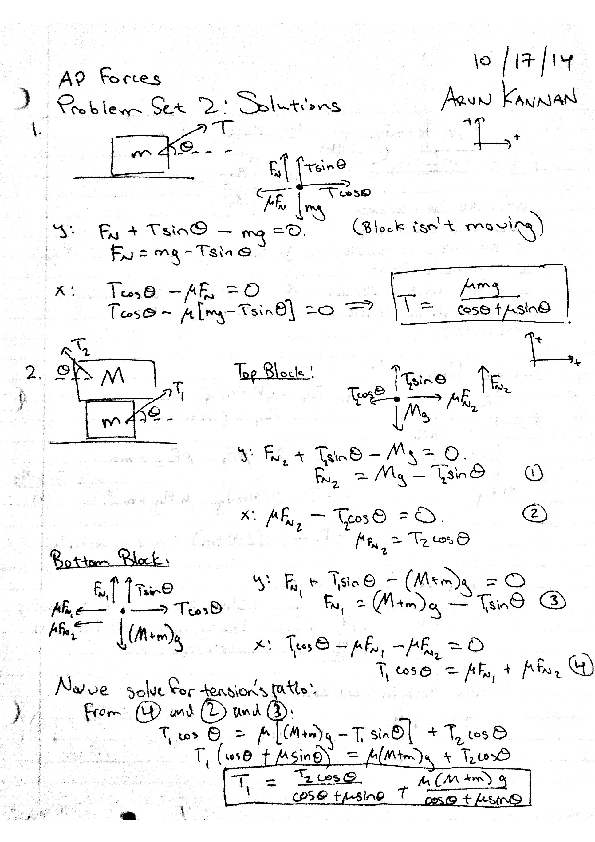 10/17/14
AP Forces
ARUN KANNAN
Problem Set 2: Solutions
+
+
1.
T
m θ
F_N Tsinθ
μF_N Tcosθ
mg
y: F_N + Tsinθ - mg = 0. (Block isn't moving)
F_N = mg - Tsinθ
x: Tcosθ - μF_N = 0
Tcosθ - μ[mg - Tsinθ] = 0 ⟹ T = μmg / cosθ + μsinθ
+
+
2.
T₂
θ M
T₁
m θ
Top Block:
T₂sinθ F_N₂
T₂cosθ μF_N₂
Mg
y: F_N₂ + T₂sinθ - Mg = 0.
F_N₂ = Mg - T₂sinθ ①
x: μF_N₂ - T₂cosθ = 0. ②
μF_N₂ = T₂cosθ
Bottom Block:
F_N₁ Tsinθ
μF_N₁ Tcosθ
μF_N₂
(M+m)g
y: F_N₁ + T₁sinθ - (M+m)g = 0
F_N₁ = (M+m)g - T₁sinθ ③
x: T₁cosθ - μF_N₁ - μF_N₂ = 0
T₁cosθ = μF_N₁ + μF_N₂ ④
solve for tension's ratio:
From ④ and ② and ③:
T₁cosθ = μ[(M+m)g - T₁sinθ] + T₂cosθ
T₁(cosθ + μsinθ) = μ(M+m)g + T₂cosθ
T₁ = T₂cosθ / cosθ + μsinθ + μ(M+m)g / cosθ + μsinθ